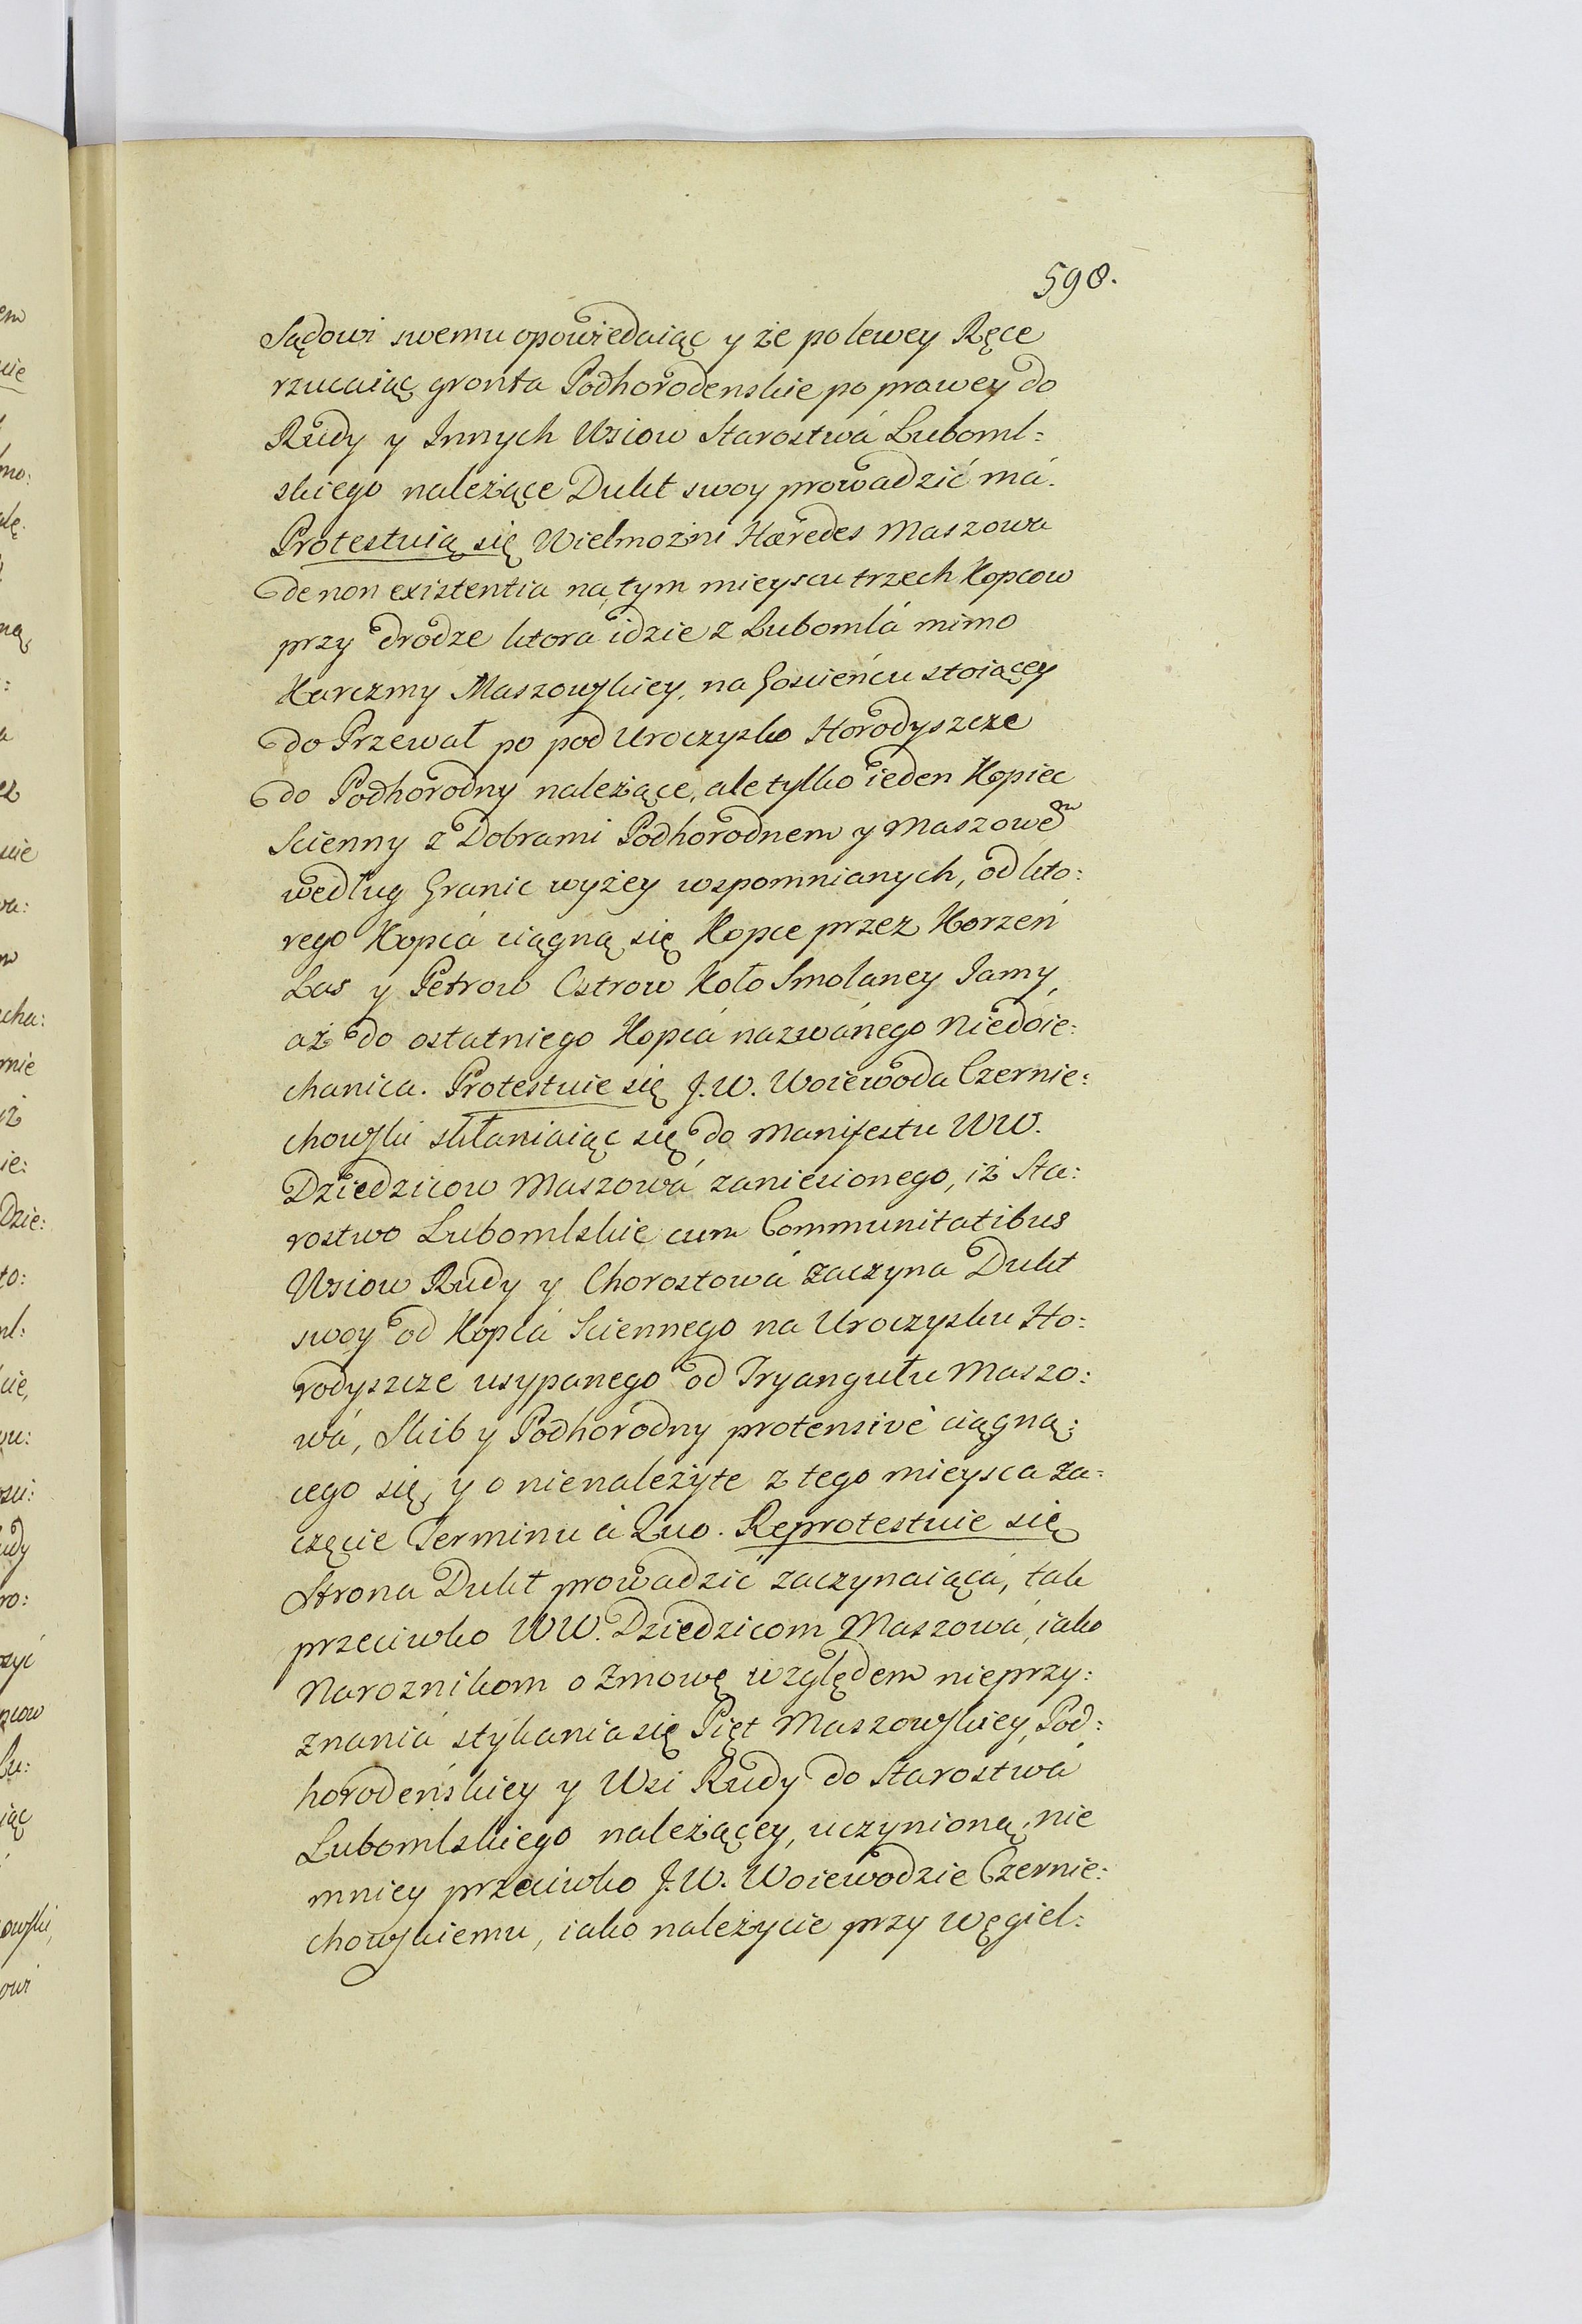 598.
Sądowi swemu opowiedaiąc y że po lewey Ręce
rzucaiąc gronta Podhorodenskie po prawey do
Rudy y Innych Wsiow Starostwá Luboml=
skiego należące Dukt swoy prowadzić má.
Protestuią się Wielmożni Hæredes Maszowa
de non existentia na tym mieyscu trzech Kopcow
przy drodze ktora idzie z Lubomlá mimo
Karczmy Maszowskiey, na Gościeńcu stoiącey
do Przewał po pod Uroczysko Horodyszcze
do Podhorodny należące, ale tylko ieden Kopiec
Scienny z Dobrami Podhorodnem y Maszowem
według Granic wyżey wspomnianych, od kto:
rego Kopcá ciągną się Kopce przez Korzeń
Las y Petrow Ostrow Koło Smolaney Jamy,
aż do ostatniego Kopcá nazwánego Niedoie:
chanica. Protestuie się J.W. Woiewoda Czernie:
chowski skłaniaiąc się do Manifestu WW.
Dziedzicow Maszowá zaniesionego, iż Sta:
rostwo Lubomlskie cum Communitatibus
Wsiow Rudy y Chorostowá zaczyna Dukt
swoy od Kopcá Sciennego na Uroczysku Ho:
rodyszcze usypanego od Tryangułu Maszo:
wá, Skib y Podhorodny protensivè ciągną:
cego się, y o nienależyte z tego mieysca za:
częcie Terminu à Quo. Reprotestuie się
Strona Dukt prowadzić zaczynaiącá, tak
przeciwko WW. Dziedzicom Maszowá, iako
Naroznikom o Zmowę względem nieprzy:
znaniá stykania się Pięt Maszowskiey, Pod:
horodeńskiey y Wsi Rudy do Starostwá
Lubomlskiego należącey, uczynioną, nie
mniey przeciwko J.W. Woiewodzie Czernie:
chowskiemu, iako należycie przy węgiel: